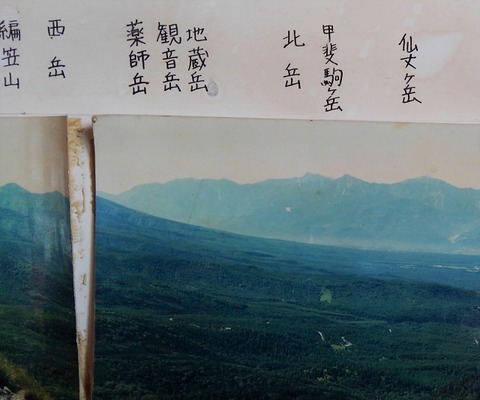 編笠山
西岳
薬師岳
観音岳
地蔵岳
北岳
甲斐駒ヶ岳
仙丈ヶ岳